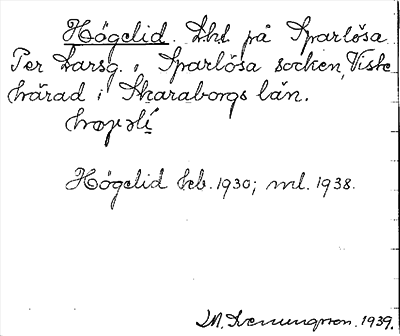 Högelid. Lht på Sparlösa
Per Larsg. i Sparlösa socken, Viste
härad i Skaraborgs län.
Högelid kb. 1930; ml. 1938.
M. Svenungson. 1939.